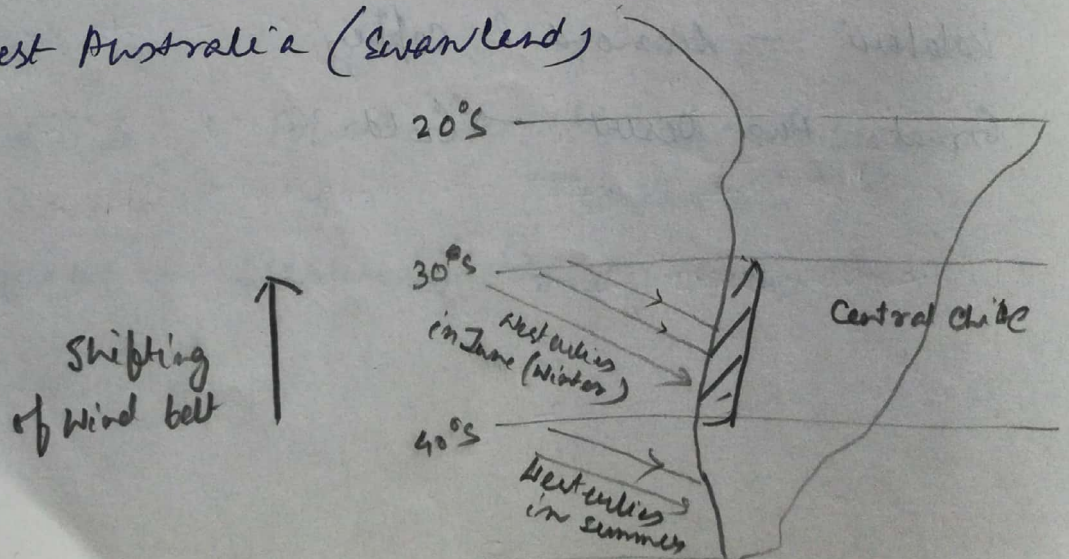 est Australia (Swanland)
20°S
30°S
Westerlies
in June (Winter)
Central Chile
Shifting
of Wind belt
40°S
Westerlies
in summer